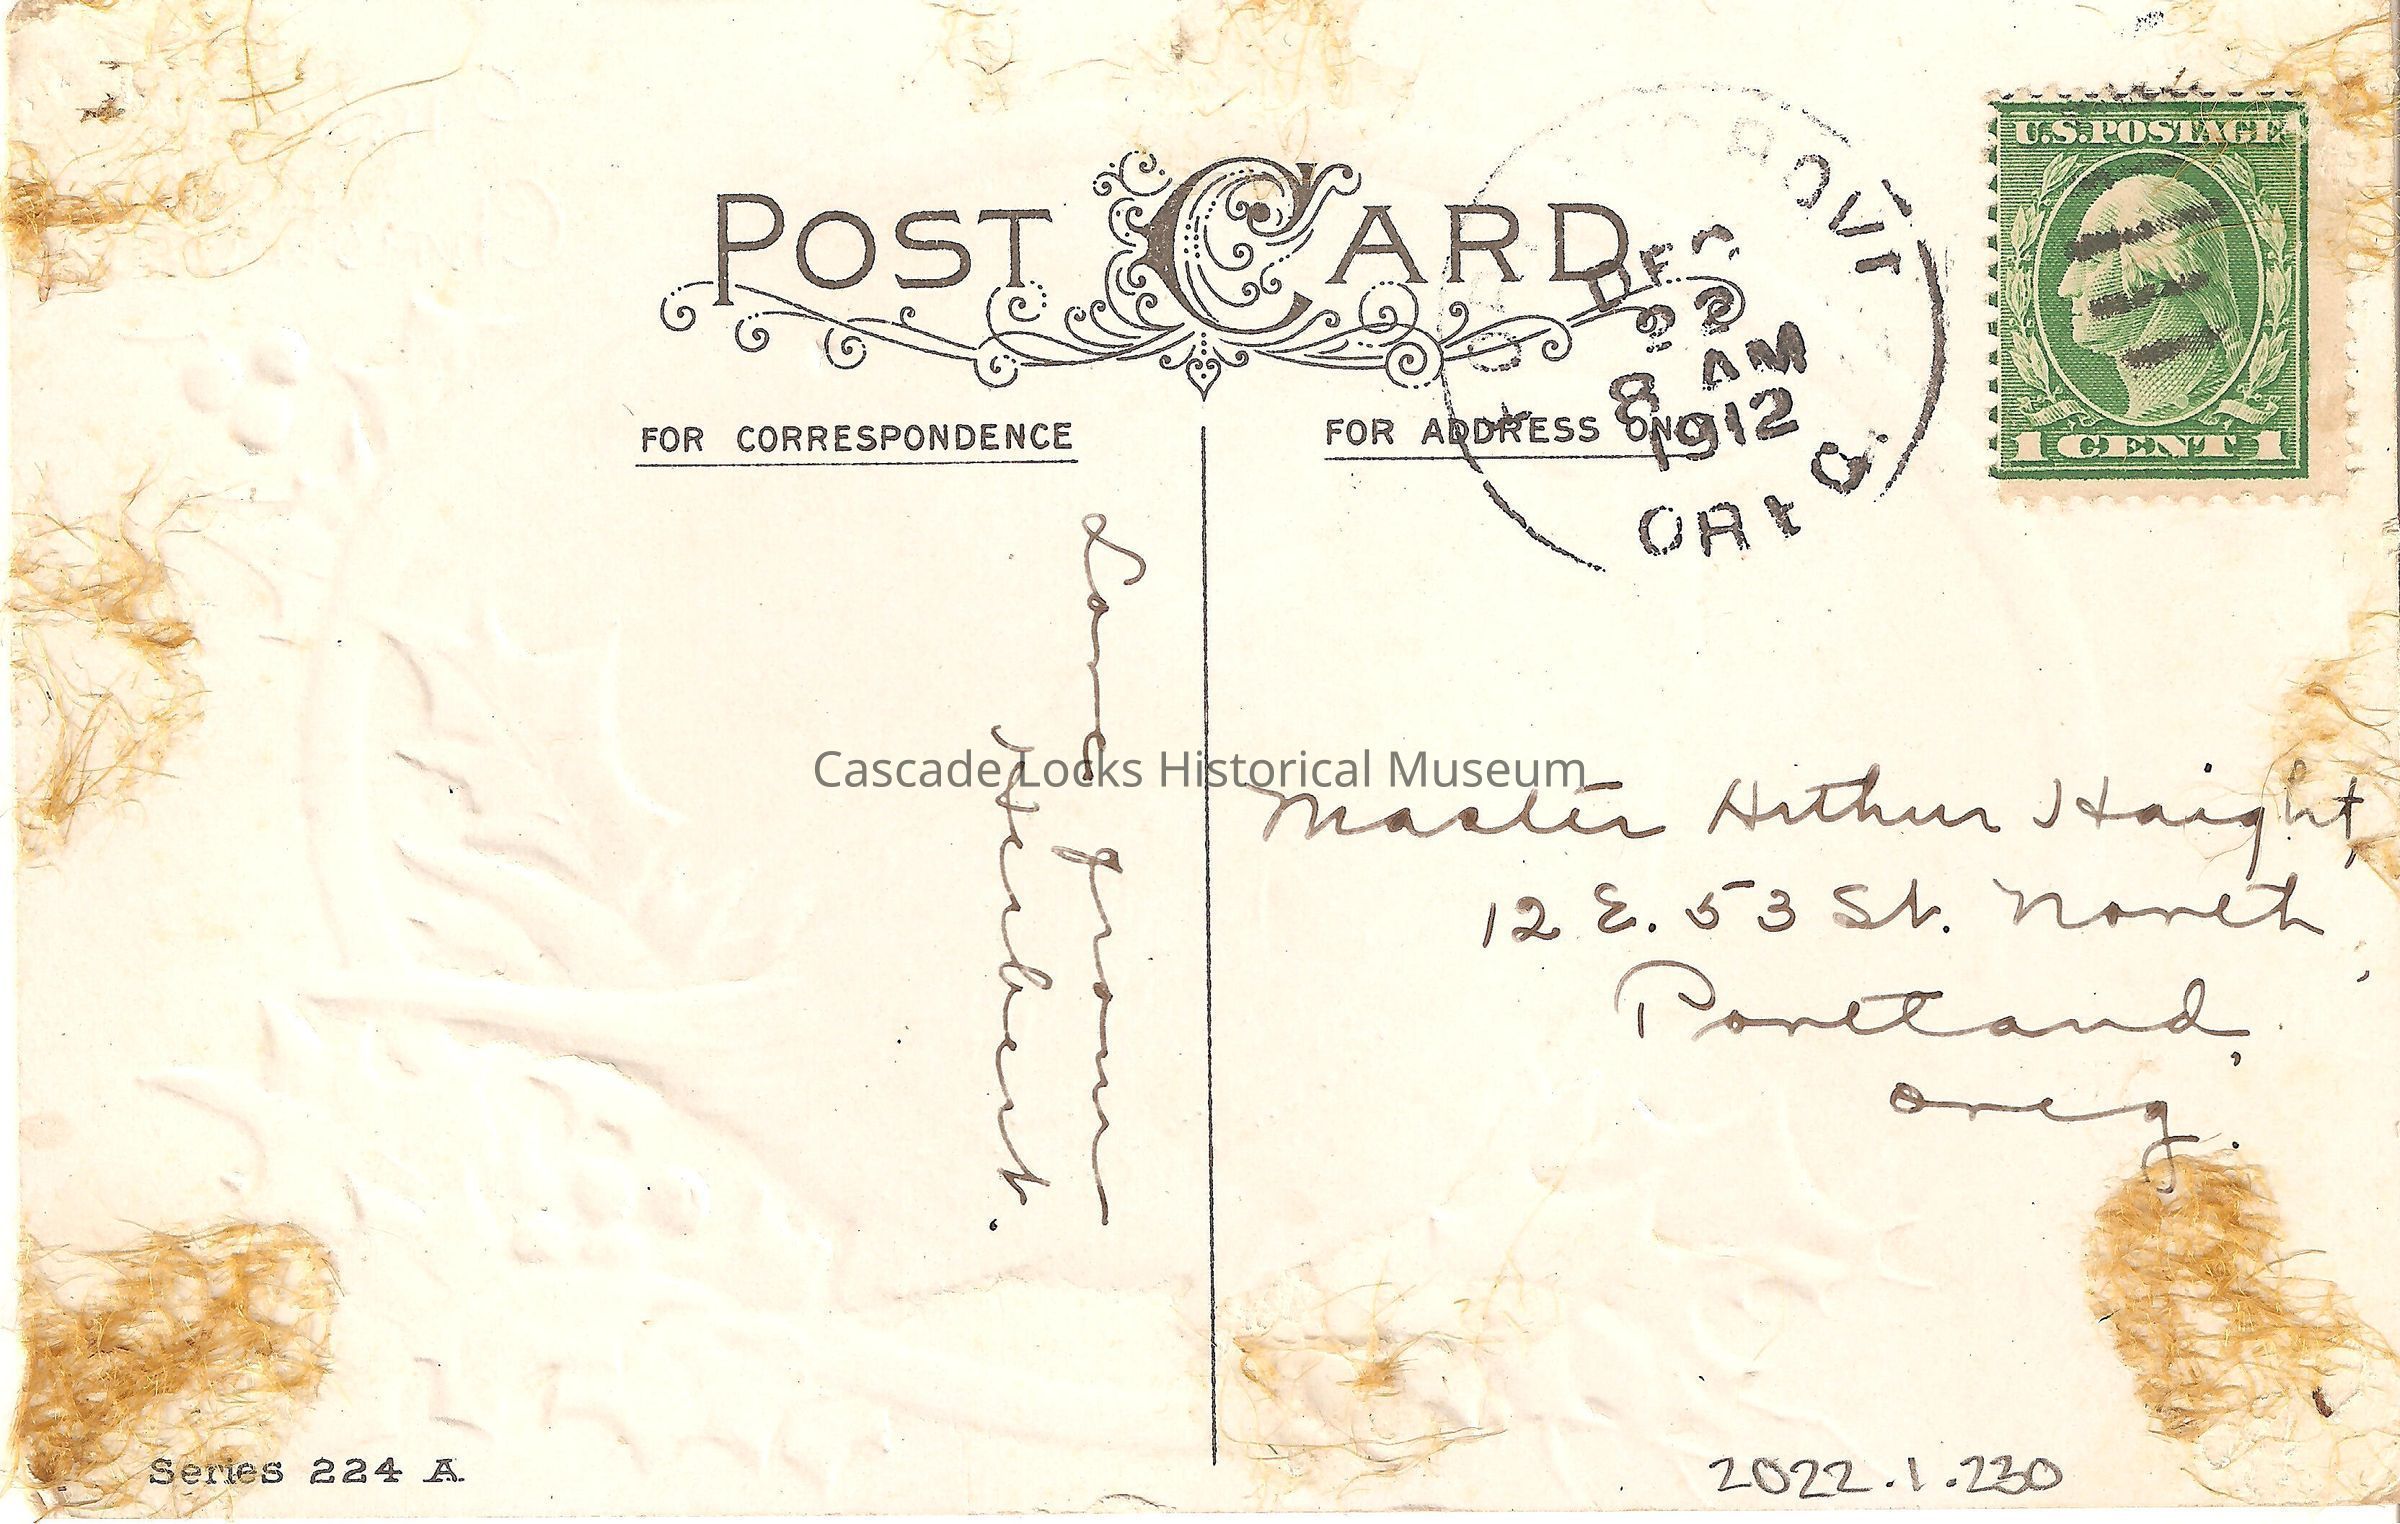 POST CARD
U.S. POSTAGE
1 CENT 1
DEC
22
8 AM
1912
FOR CORRESPONDENCE
FOR ADDRESS ONL
Love from
Herbert.
Cascade Locks Historical Museum
Master Arthur Haight,
12 E. 53 St. North,
Portland,
Oreg.
Series 224 A.
2022.1.230